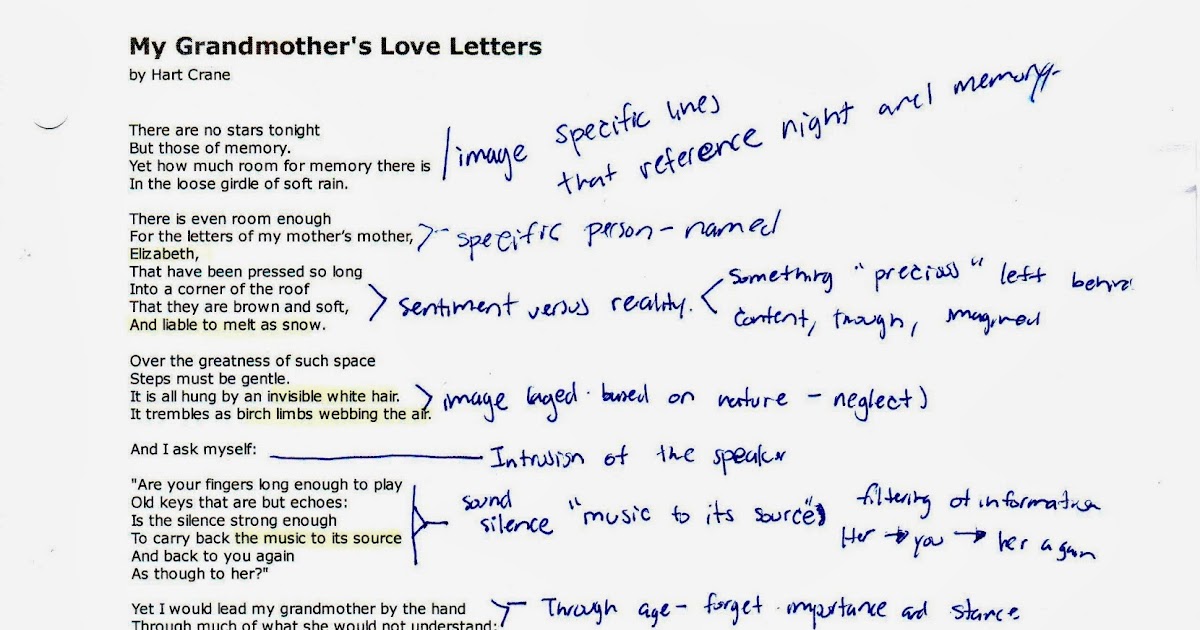 My Grandmother's Love Letters
by Hart Crane
There are no stars tonight
But those of memory.
Yet how much room for memory there is
In the loose girdle of soft rain.
image specific lines
that reference night and memory.
There is even room enough
For the letters of my mother's mother,
Elizabeth,
specific person - named
That have been pressed so long
Into a corner of the roof
That they are brown and soft,
And liable to melt as snow.
sentiment versus reality.
Something "precious" left
content, though, imagined
Over the greatness of such space
Steps must be gentle.
It is all hung by an invisible white hair.
It trembles as birch limbs webbing the air.
image (aged. based on nature - neglect)
And I ask myself:
Intrusion of the speaker
"Are your fingers long enough to play
Old keys that are but echoes:
Is the silence strong enough
To carry back the music to its source
And back to you again
As though to her?"
sound
silence "music to its source"
filtering of information
Her → you → her again
Yet I would lead my grandmother by the hand
Through much of what she would not understand;
Through age - forget importance and stance